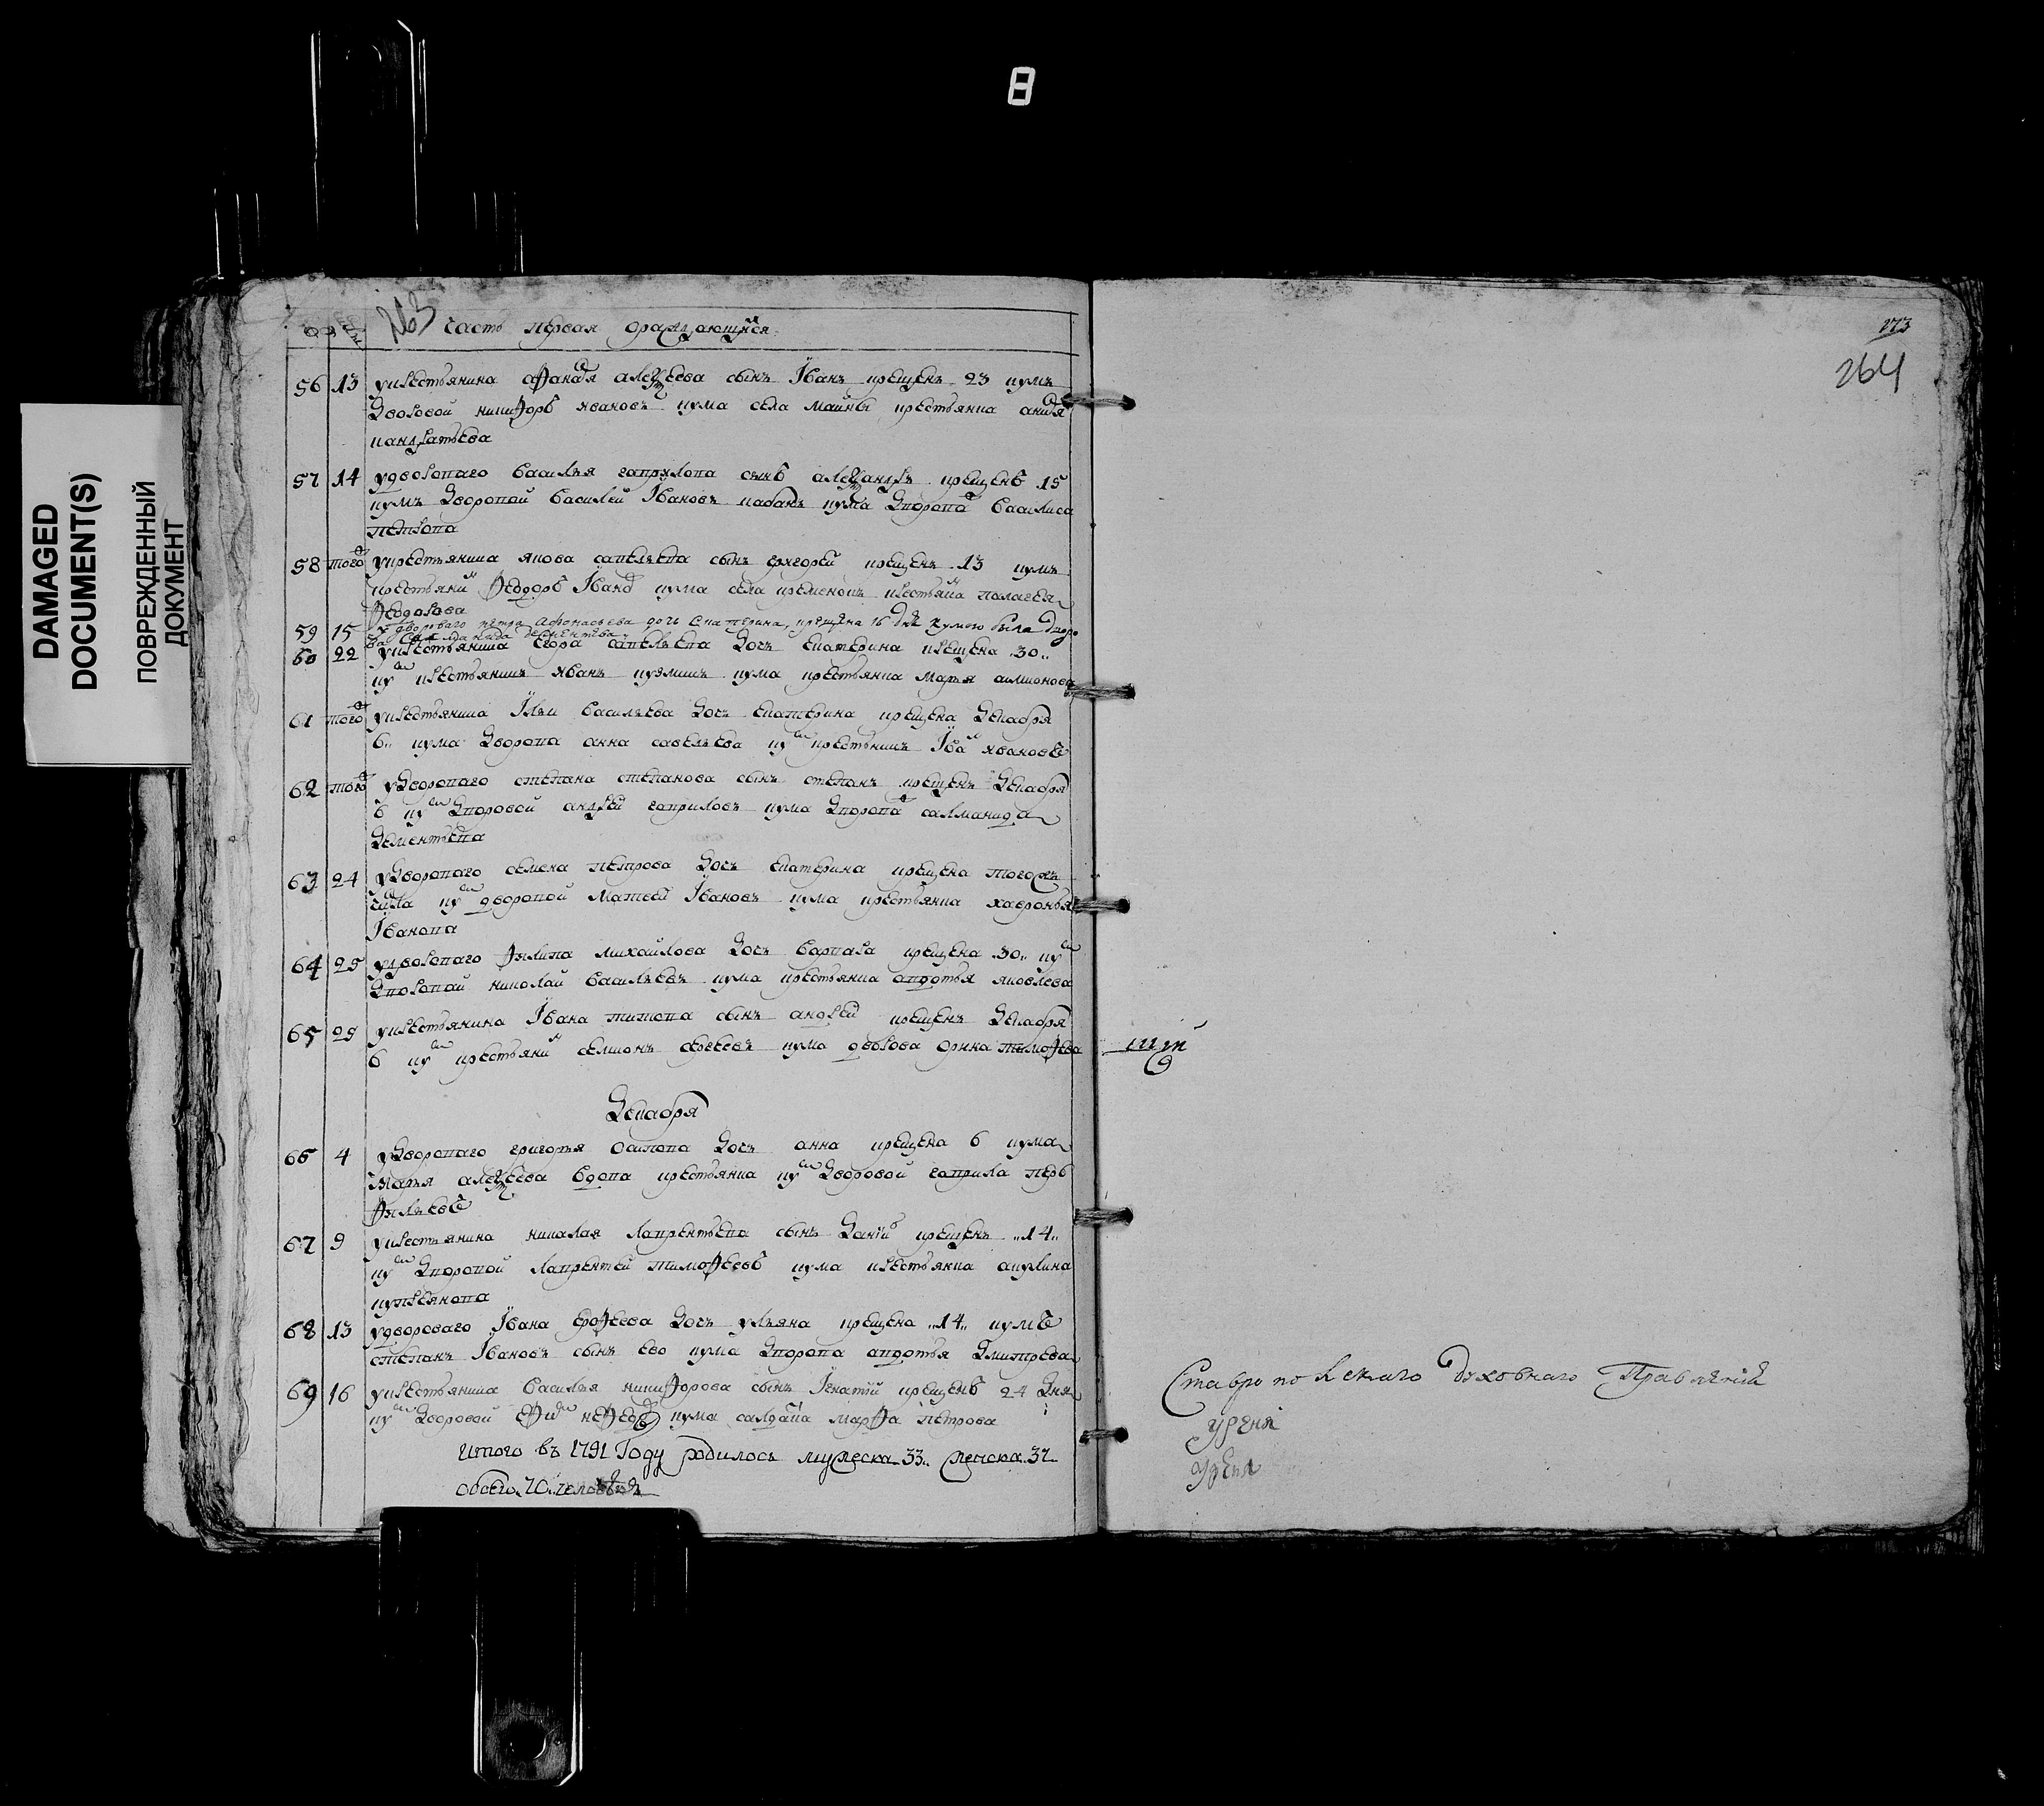 8
DAMAGED
DOCUMENT(S)
ПОВРЕЖДЕННЫЙ
ДОКУМЕНТ
263 часть первая ораждающихся
56 13 укрестьянина афанасья алексеева сынъ Іванъ крещенъ 23 кумъ
дворовой никифоръ ивановъ кума села майны крестьянка анисья
кандратьева
57 14 удвороваго василья гаврилова сынъ александръ крещенъ 15
кумъ дворовой василей Івановъ кума дворовая василиса
петрова
58 того укрестьянина якова савельева сынъ григорей крещенъ 13 кумъ
крестьянинъ федоръ кума села крестьянка палагея
федорова
59 15 у двороваго петра афонасьева дочь екатерина, крещена 16 дня кумою была дворо
дементьева
60 22 укрестьянина егора савельева дочь екатерина крещена 30
кум крестьянинъ иванъ кузминъ кума крестьянка марья симионова
61 того укрестьянина Ільи васильева дочь екатерина крещена декабря
6 кума дворова анна савельева кум крестьнинъ Іва ивановъ
62 того удвороваго степана степанова сынъ степанъ крещенъ декабря
6 кум дворовой андрей гавриловъ кума дворова саламанида
дементьева
63 24 удвороваго семена петрова дочь екатерина крещена тогожъ
числа кум дворовой матвей Івановъ кума крестьянка хавронья
Іванова
64 25 удвороваго филипа михайлова дочь варвара крещена 30 кум
дворовай николай васильевъ кума крестьянка авдотья яковлева
65 29 укрестьянина Івана титова сынъ андрей крещенъ декабря
6 кум крестьянинъ симионъ сергеевъ кума дворова орина тимофева
Декабря
66 4 удвороваго григорья осипова дочь анна крещена 6 кума
марья алексеева вдова крестьянка кум дворовой гаврила перъ
фильевъ
67 9 укрестьянина никалая лаврентьева сынъ данилъ крещенъ 14
кум дворовой лаврентей тимофеевъ кума крестьянка акулина
куприянова
68 13 удвороваго Івана ерофеева дочь ульяна крещена 14 кумъ
степанъ Івановъ сынъ ево кума дворова авдотья дмитрева
69 16 укрестьянина василья никифорова сынъ Ігнатій крещенъ 24 дня
кум дворовой кума салдатка марфа петрова
итого въ 1791 Году родилось мужеска 33 женска 37
обоего 70 человѣкъ
173
264
Ставропольскаго Духовнаго Правленія